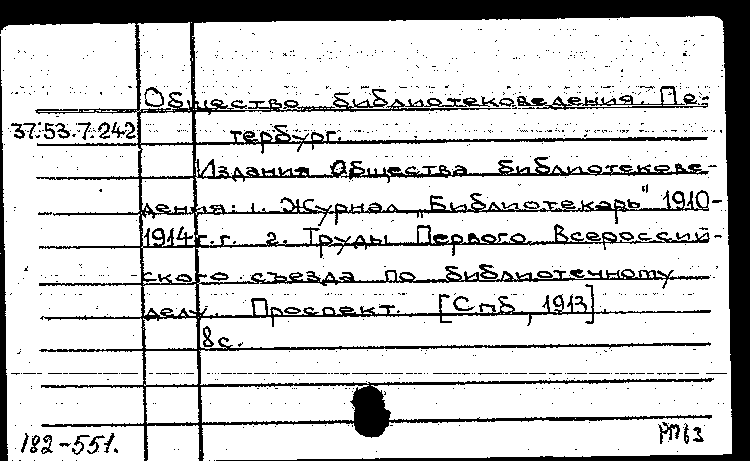 Общество библиотековедения. Пе-
37.53.7.242 тербург.
Издания Общества библиотекове-
дения: 1. Журнал „Библиотекарь" 1910-
1914 г.г. 2. Труды Первого Всероссий-
ского съезда по библиотечному
делу. Проспект. [Спб, 1913].
8с.
182-551.